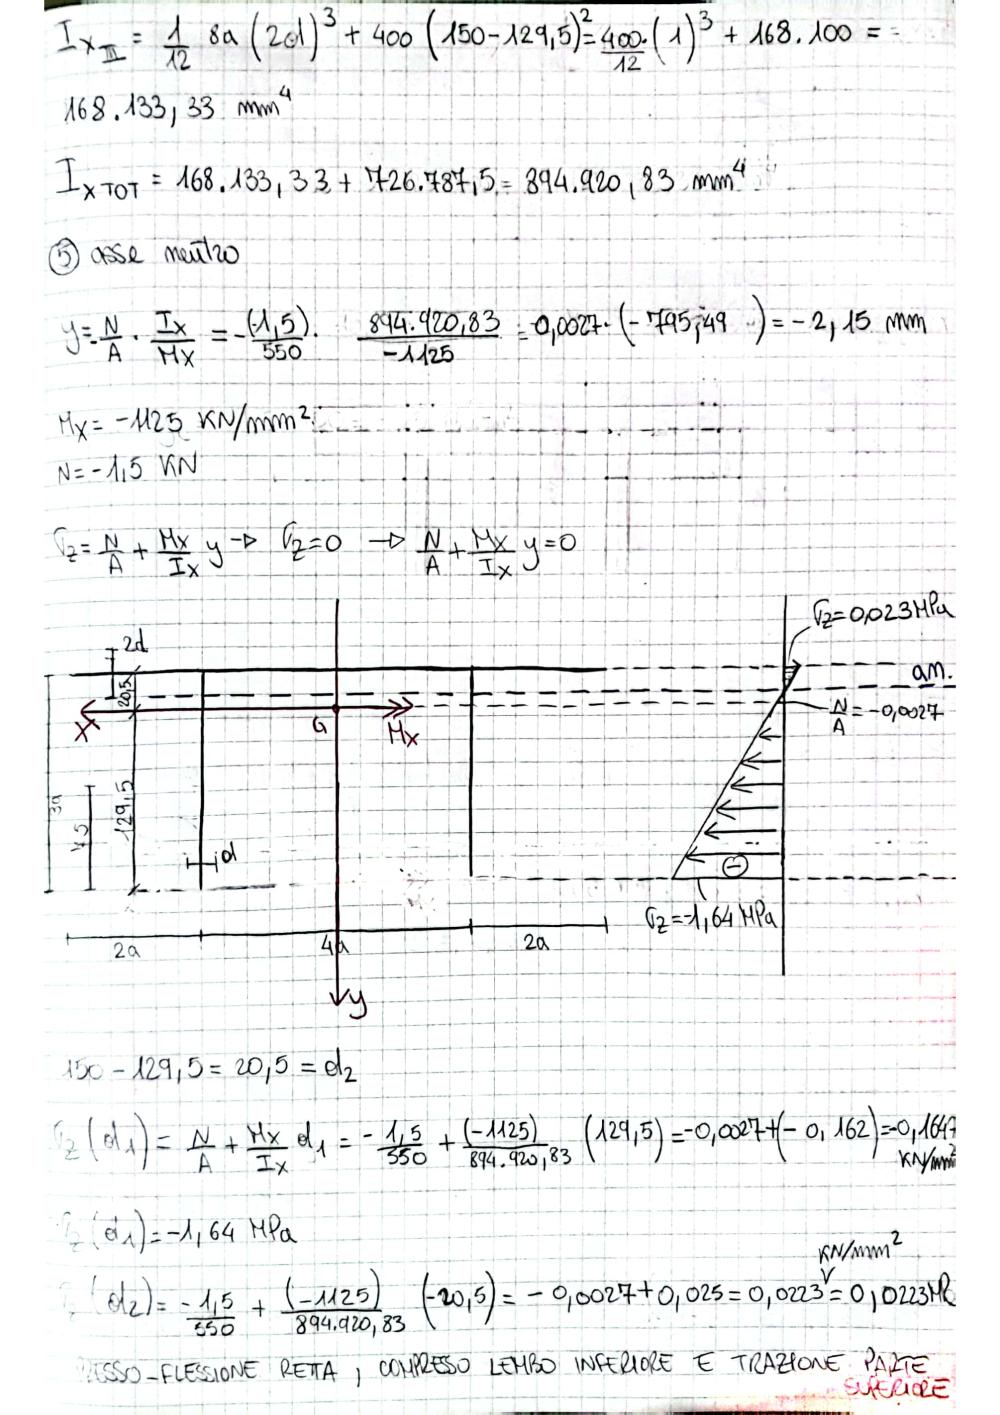 I_xIII = 1/12 8a (2d)³ + 400 (150-129,5)² = 400/12 · (1)³ + 168.100 = =
168.133,33 mm⁴
I_x TOT = 168.133,33 + 726.787,5 = 894.920,83 mm⁴
⑤ asse neutro
y = N/A · Ix/Mx = -(1,5)/550 · 894.920,83/-1125 = 0,0027 · (-795,49) = -2,15 mm
Mx = -1125 KN/mm²
N = -1,5 KN
σz = N/A + Mx/Ix y → σz = 0 → N/A + Mx/Ix y = 0
σz = 0,023 MPa
2d
20,5
a.n.
X G Mx
N/A = -0,0027
3a
75
129,5
d
⊖
σz = -1,64 MPa
2a 4a 2a
y
150 - 129,5 = 20,5 = d2
σz (d1) = N/A + Mx/Ix d1 = -1,5/550 + (-1125)/894.920,83 (129,5) = -0,0027 + (-0,162) = -0,1647 KN/mm²
σz (d1) = -1,64 MPa
KN/mm²
(d2) = -1,5/550 + (-1125)/894.920,83 (-20,5) = -0,0027 + 0,025 = 0,0223 = 0,0223 MP
ESSO-FLESSIONE RETTA, COMPRESO LEMBO INFERIORE E TRAZIONE PARTE
SUPERIORE